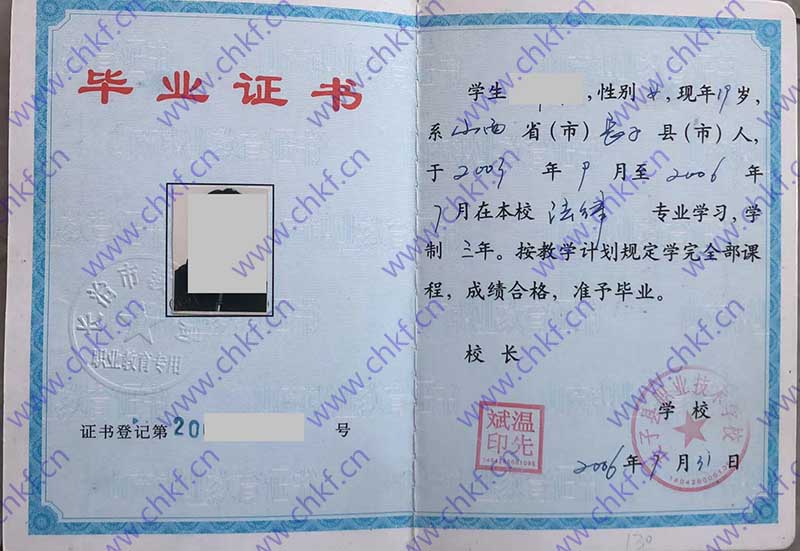 毕业证书
长治市
职业教育专用
证书登记第20 号
学生 ，性别女，现年19岁，
系山西省（市）长子县（市）人，
于2003年9月至2006年
7月在本校法律专业学习，学
制三年。按教学计划规定学完全部课
程，成绩合格，准予毕业。
校长
温先斌印
1404280001095
学校
长子县职业技术学校
2006年7月31日
130
www.chkf.cn